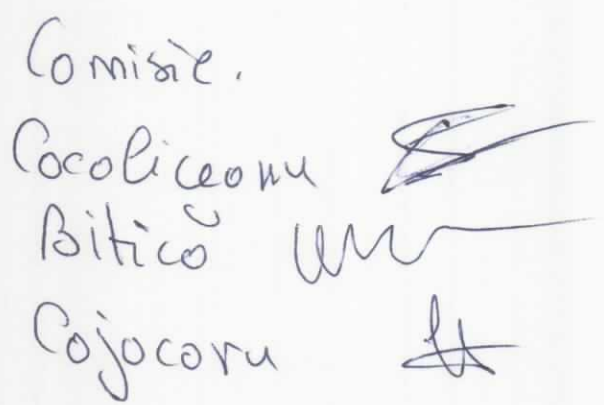 Comisie.
Cocoliceanu
Bitică
Cojocaru